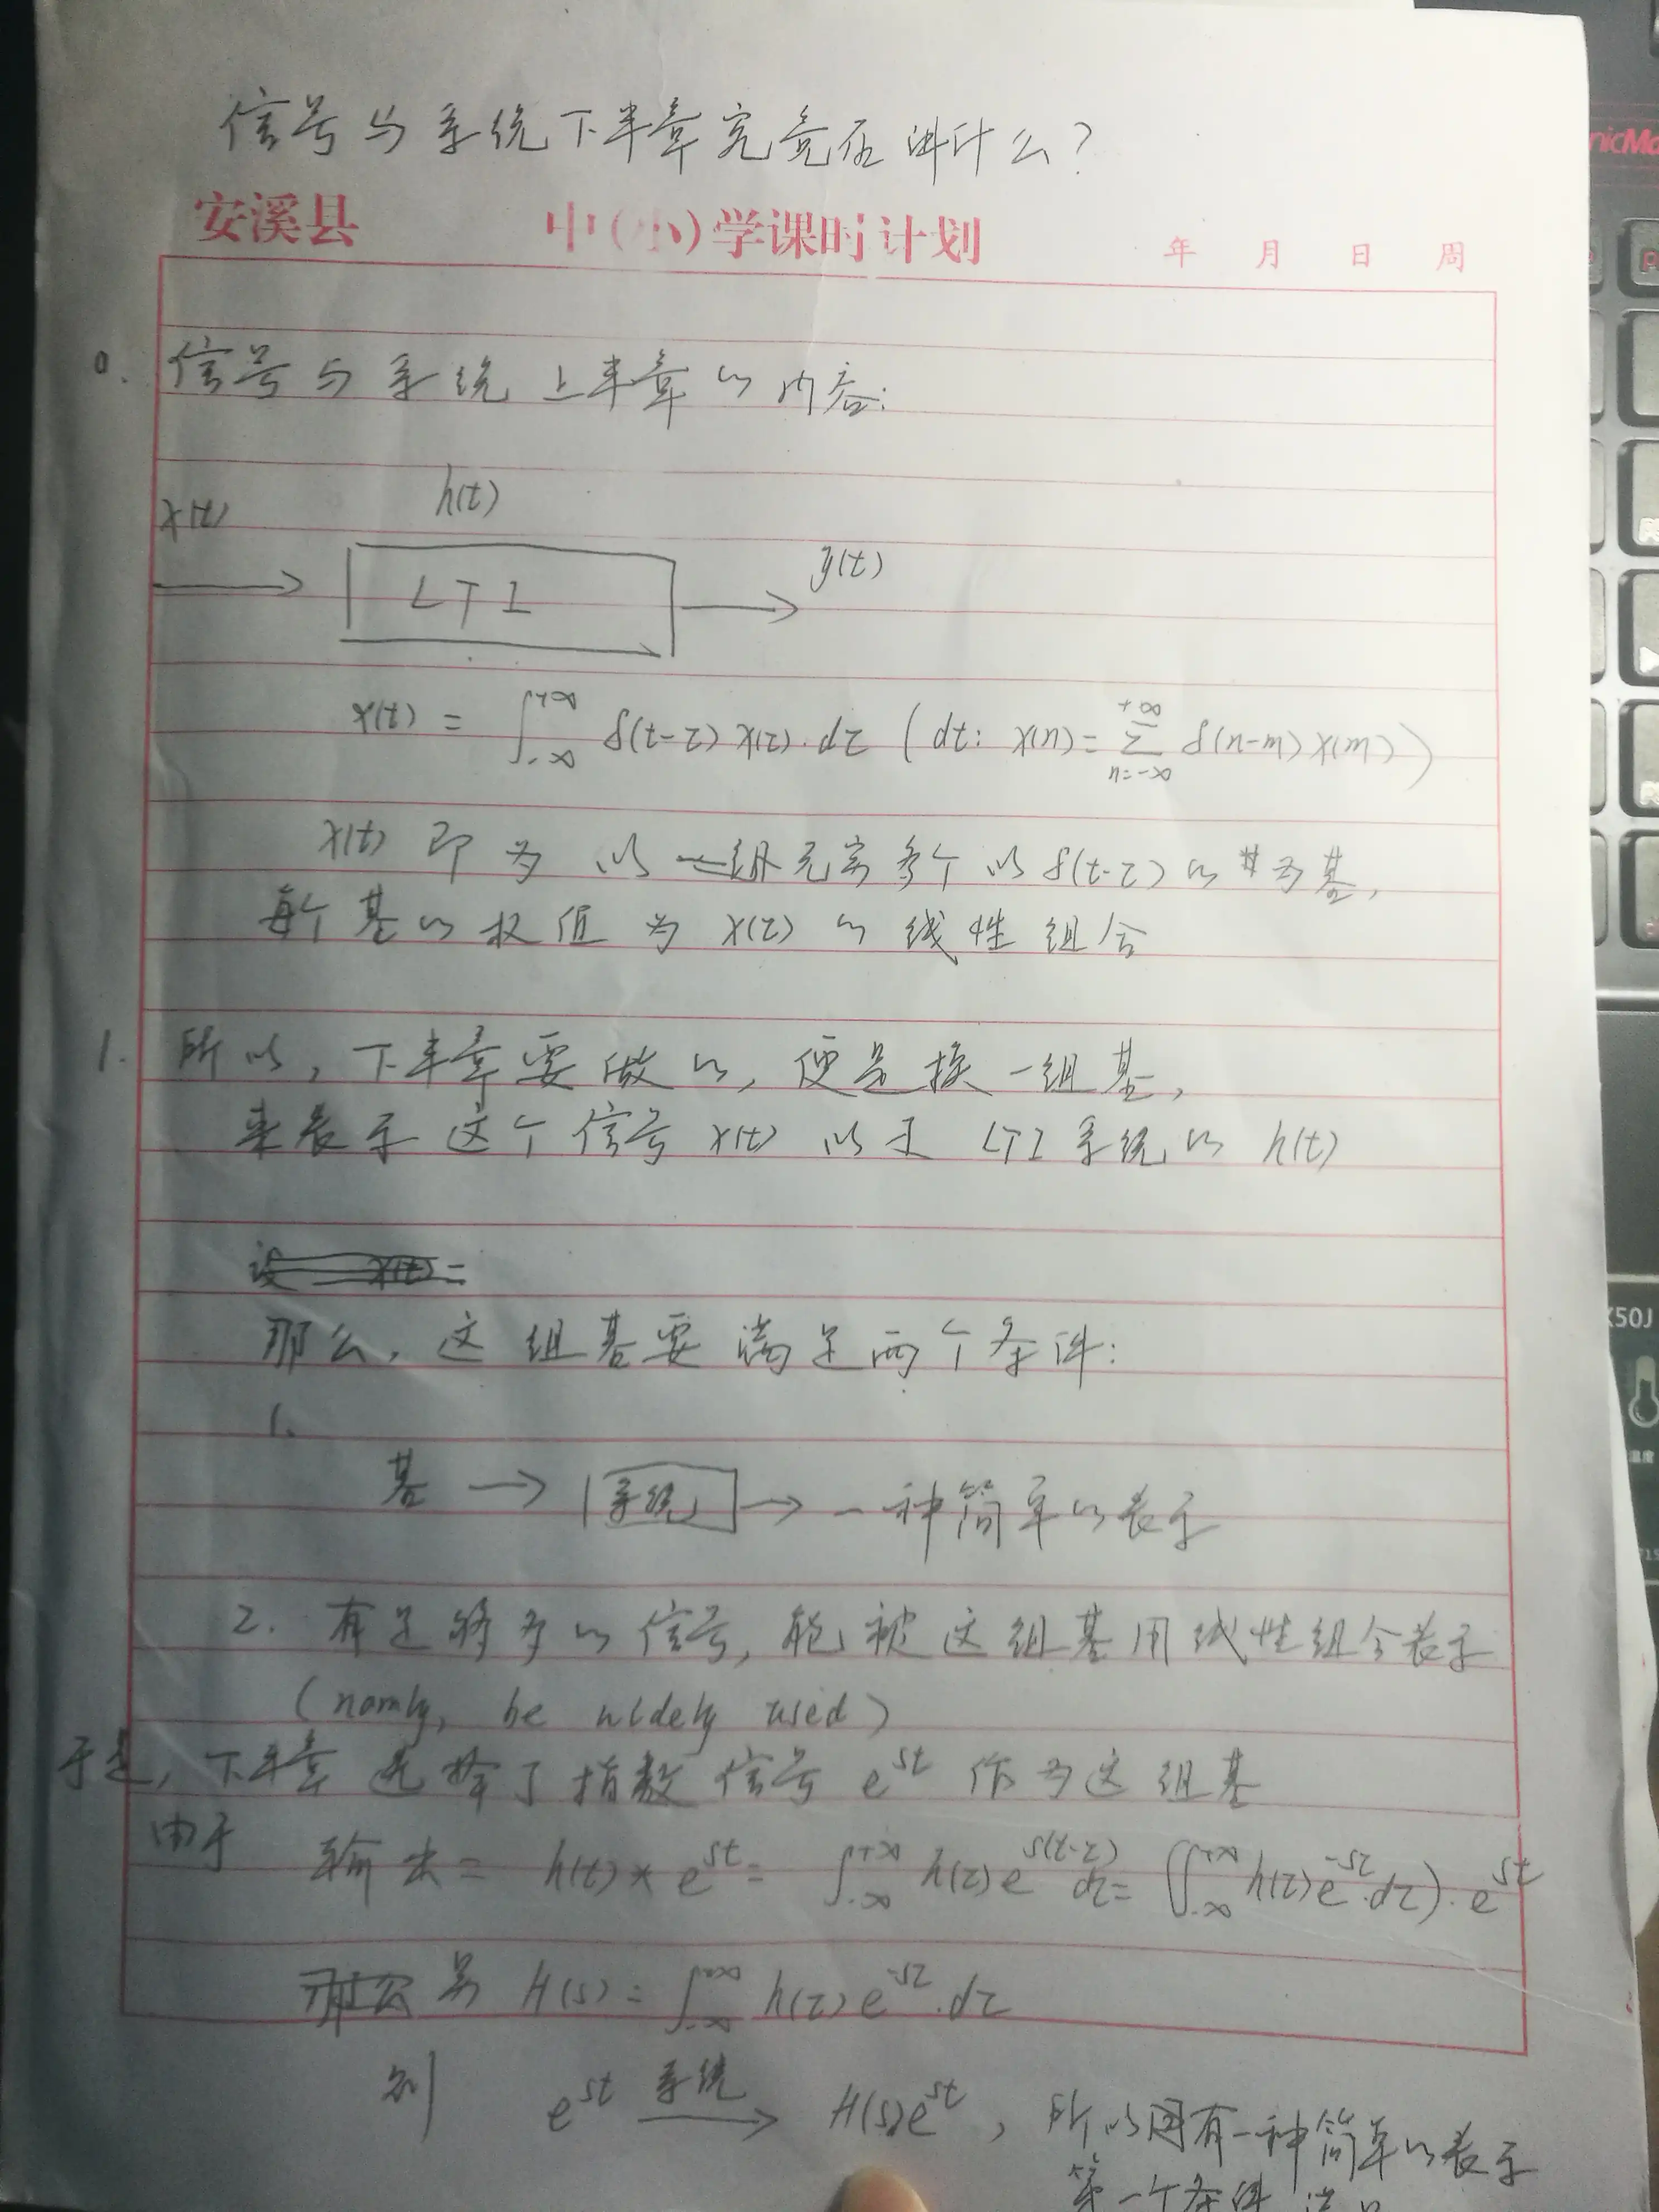 信号与系统下半章究竟在讲什么？
安溪县 中(小)学课时计划 年 月 日 周
0. 信号与系统上半章的内容：
h(t)
x(t)
y(t)
LTI
x(t) = ∫_{-∞}^{+∞} δ(t-τ) x(τ)·dτ (dt: x(n) = Σ_{n=-∞}^{+∞} δ(n-m) x(m))
x(t) 即为 以一组无穷多个以δ(t-τ)的 为基，
每个基的权值为 x(τ) 的线性组合
1. 所以，下半章要做的，便是换一组基，
来表示这个信号 x(t) 以及 LTI 系统的 h(t)
设 x(t) =
那么，这组基要满足两个条件：
1.
基 → 系统 → 一种简单的表示
2. 有足够多的信号，能被这组基用线性组合表示
(namly, be widely used)
于是，下半章选择了指数信号 e^{st} 作为这组基
由于 输出 = h(t) * e^{st} = ∫_{-∞}^{+∞} h(τ) e^{s(t-τ)} dτ = (∫_{-∞}^{+∞} h(τ) e^{-sτ}·dτ)·e^{st}
那么 另 H(s) = ∫_{-∞}^{+∞} h(τ) e^{-sτ}·dτ
则 e^{st} 系统→ H(s)e^{st}, 所以因有一种简单的表示
第一个条件